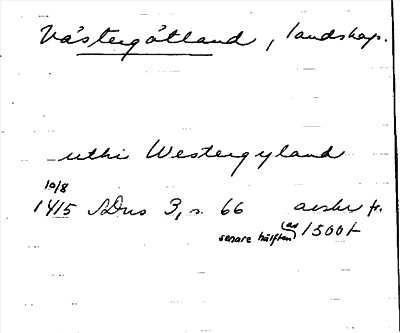 Västergötland, landskap.
uthi Westergyland
10/8
1415 SDns 3, s. 66 avskr fr.
senare hälften av 1500t